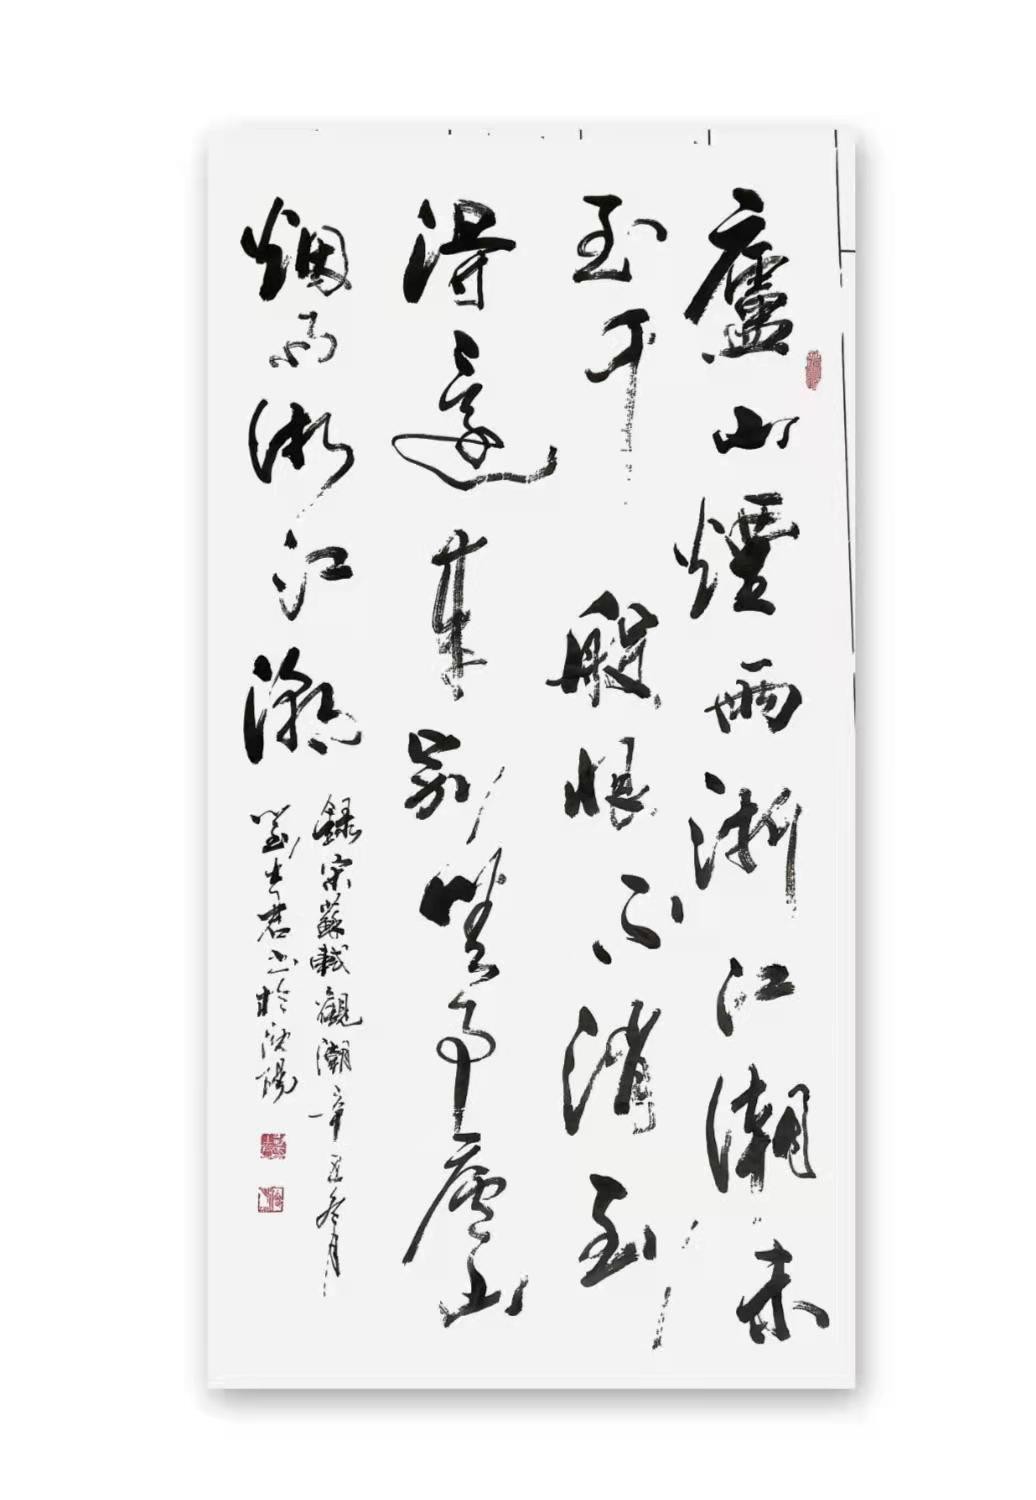 廬山煙雨浙江潮未
至千般恨不消到
得還来别無事廬山
烟雨浙江潮
錄宋蘇軾觀潮辛丑冬月
劉君书於沈陽